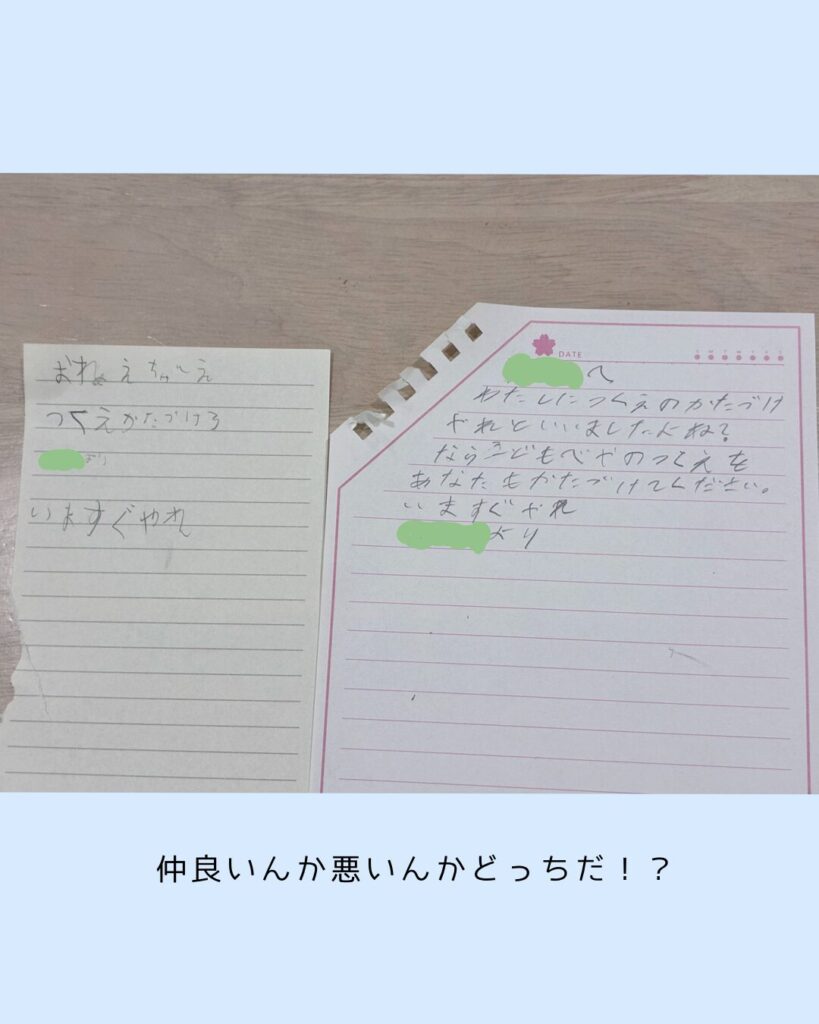 おねえちゃんえ
つくえかたづけろ
より
いますぐやれ
DATE
S M T W T F S
へ
わたしにつくえのかたづけ
やれといいましたよね?
ならこどもべやのつくえを
あなたもかたづけてください。
いますぐやれ
より
仲良いんか悪いんかどっちだ！？